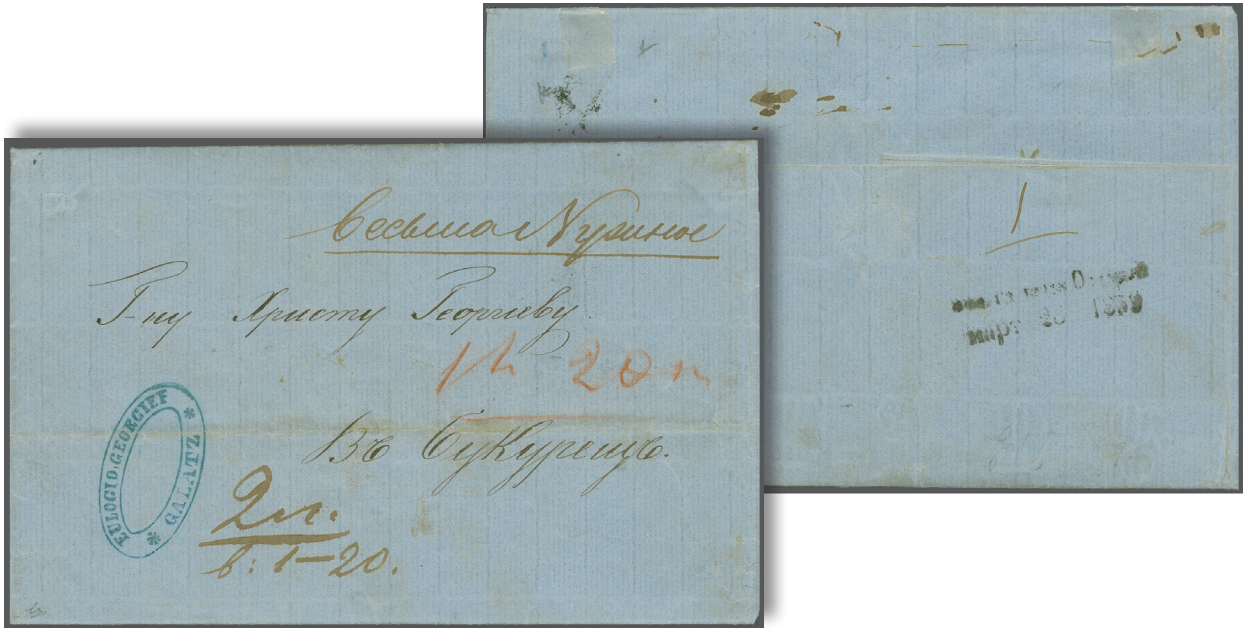 весьма Нужное
Г-ну Христу Георгиеву.
20
Въ Букурещъ.
EULOGIO.GEORGIEF
* GALATZ *
2 л.
в: 1–20.
1
март 20 1859